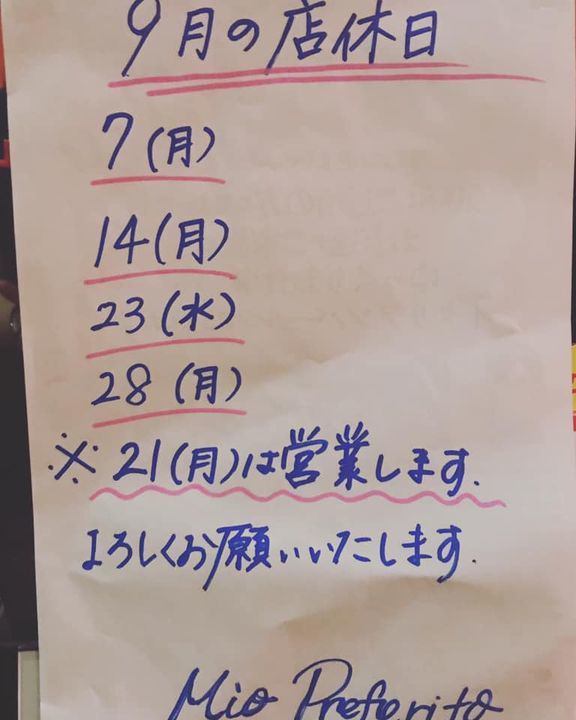 9月の店休日
7(月)
14(月)
23(水)
28(月)
※21(月)は営業します.
よろしくお願いいたします.
Mio Preferito